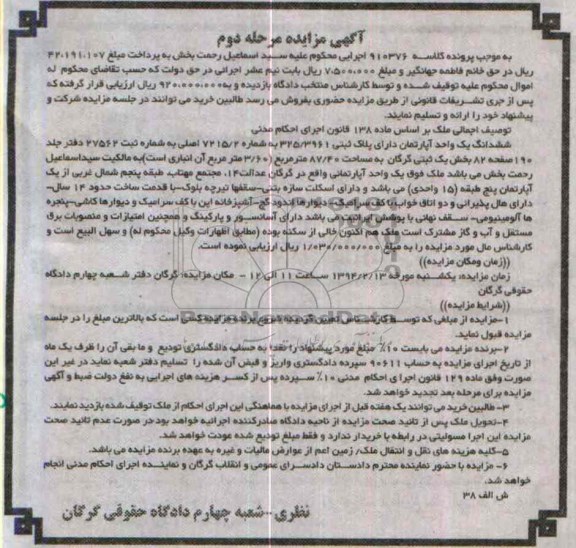 آگهی مزایده مرحله دوم
به موجب پرونده کلاسه ۹۱۰۳۷۶ اجرایی محکوم علیه سید اسماعیل رحمت بخش به پرداخت مبلغ ۴۲،۱۹۱،۱۰۷
ریال در حق خانم فاطمه جهانگیر و مبلغ ۷،۵۰۰،۰۰۰ ریال بابت نیم عشر اجرائی در حق دولت که حسب تقاضای محکوم له
اموال محکوم علیه توقیف شده و توسط کارشناس منتخب دادگاه بازدید و به ۹۲۰،۰۰۰،۰۰۰ ریال ارزیابی قرار گرفته که
پس از جری تشریفات قانونی از طریق مزایده حضوری بفروش می رسد طالبین خرید می توانند در جلسه مزایده شرکت و
پیشنهاد خود را ارائه و تسلیم نمایند.
توصیف اجمالی ملک بر اساس ماده ۱۳۸ قانون اجرای احکام مدنی
ششدانگ یک واحد آپارتمان دارای پلاک ثبتی ۳۲۵/۳۹۶۱ به شماره ۷۲۱۵/۲ اصلی به شماره ثبت ۲۷۵۶۲ دفتر جلد
۱۹۰ صفحه ۸۲ بخش یک ثبتی گرگان به مساحت ۸۷/۴۰ مترمربع (۳/۶۰ متر مربع آن انباری است) به مالکیت سیداسماعیل
رحمت بخش می باشد ملک فوق یک واحد آپارتمانی واقع در گرگان عدالت ۱۴، مجتمع مهتاب طبقه پنجم شمال غربی از یک
آپارتمان پنج طبقه (۱۵ واحدی) می باشد و دارای اسکلت سازه بتنی-سقفها تیرچه بلوک-با قدمت ساخت حدود ۱۴ سال-
دارای هال پذیرائی و دو اتاق خواب با کف سرامیک-دیوارها اندود گچ-آشپزخانه اپن با کف سرامیک و دیوارها کاشی-پنجره
ها آلومینیومی- سقف نهائی با پوشش ایرانیت می باشد دارای آسانسور و پارکینگ و همچنین امتیازات و منصوبات برق
مستقل و آب و گاز مشترک است ملک هم اکنون خالی از سکنه بوده (مطابق اظهارات وکیل محکوم له) و سهل البیع است و
کارشناس مال مورد مزایده را به مبلغ ۱/۰۳۰/۰۰۰/۰۰۰ ریال ارزیابی نموده است.
((زمان ومکان مزایده))
زمان مزایده: یکشنبه مورخه ۱۳۹۴/۲/۱۳ ساعت ۱۱ الی ۱۲ – مکان مزایده: گرگان دفتر شعبه چهارم دادگاه
حقوقی گرگان
((شرایط مزایده))
۱-مزایده از مبلغی که توسط کارشناس تعیین گردیده شروع برنده مزایده کسی است که بالاترین مبلغ را در جلسه
مزایده قبول نماید.
۲-برنده مزایده می بایست ۱۰٪ مبلغ مورد پیشنهاد را نقدا به حساب دادگستری تودیع و ما بقی آن را ظرف یک ماه
از تاریخ اجرای مزایده به حساب ۹۰۶۱۱ سپرده دادگستری واریز و قبض آن شده را تسلیم دفتر شعبه نماید در غیر این
صورت وفق ماده ۱۲۹ قانون اجرا ی احکام مدنی ۱۰٪ سپرده پس از کسر هزینه های اجرایی به نفع دولت ضبط و آگهی
مزایده برای مرحله بعد تجدید خواهد شد.
۳- طالبین خرید می توانند یک هفته قبل از اجرای مزایده با هماهنگی این اجرای احکام از ملک توقیف شده بازدید نمایند.
۴-تحویل ملک پس از تائید صحت مزایده از ناحیه دادگاه صادرکننده اجرائیه خواهد بود در صورت عدم تائید صحت
مزایده این اجرا مسولیتی در رابطه با خریدار ندارد و فقط مبلغ تودیع شده عودت خواهد شد.
۵-کلیه هزینه های نقل و انتقال ملک/ زمین اعم از عوارض مالیات و غیره به عهده برنده مزایده می باشد.
۶- مزایده با حضور نماینده محترم دادستان دادسرای عمومی و انقلاب گرگان و نماینده اجرای احکام مدنی انجام
خواهد شد.
ش الف ۳۸
نظری-شعبه چهارم دادگاه حقوقی گرگان